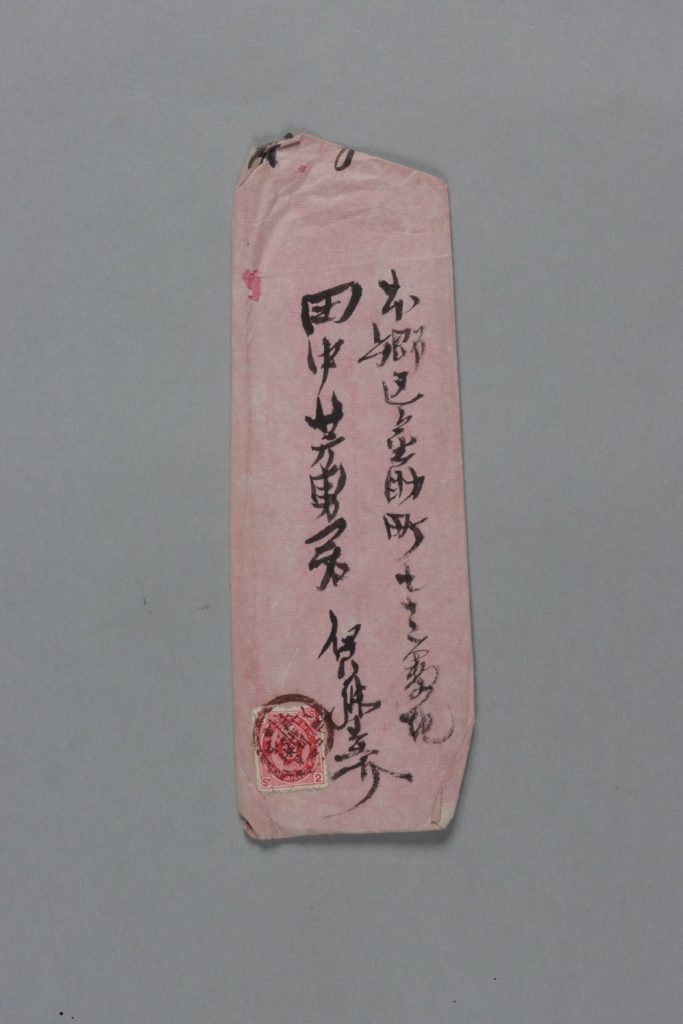 本郷区金助町七十三番地
田中芳男君
伊藤圭介
2